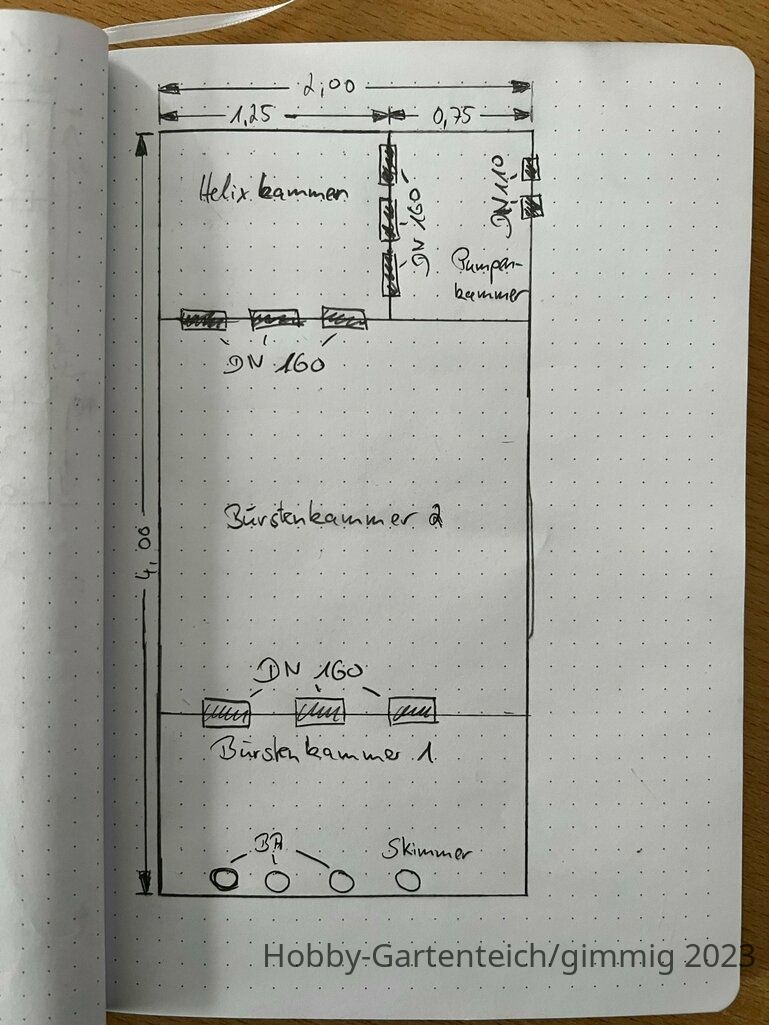 2,00
1,25
0,75
Helixkammer
DN 160
DN 110
Pumpen-
kammer
DN 160
4,00
Bürstenkammer 2
DN 160
Bürstenkammer 1
BA
Skimmer
Hobby-Gartenteich/gimmig 2023